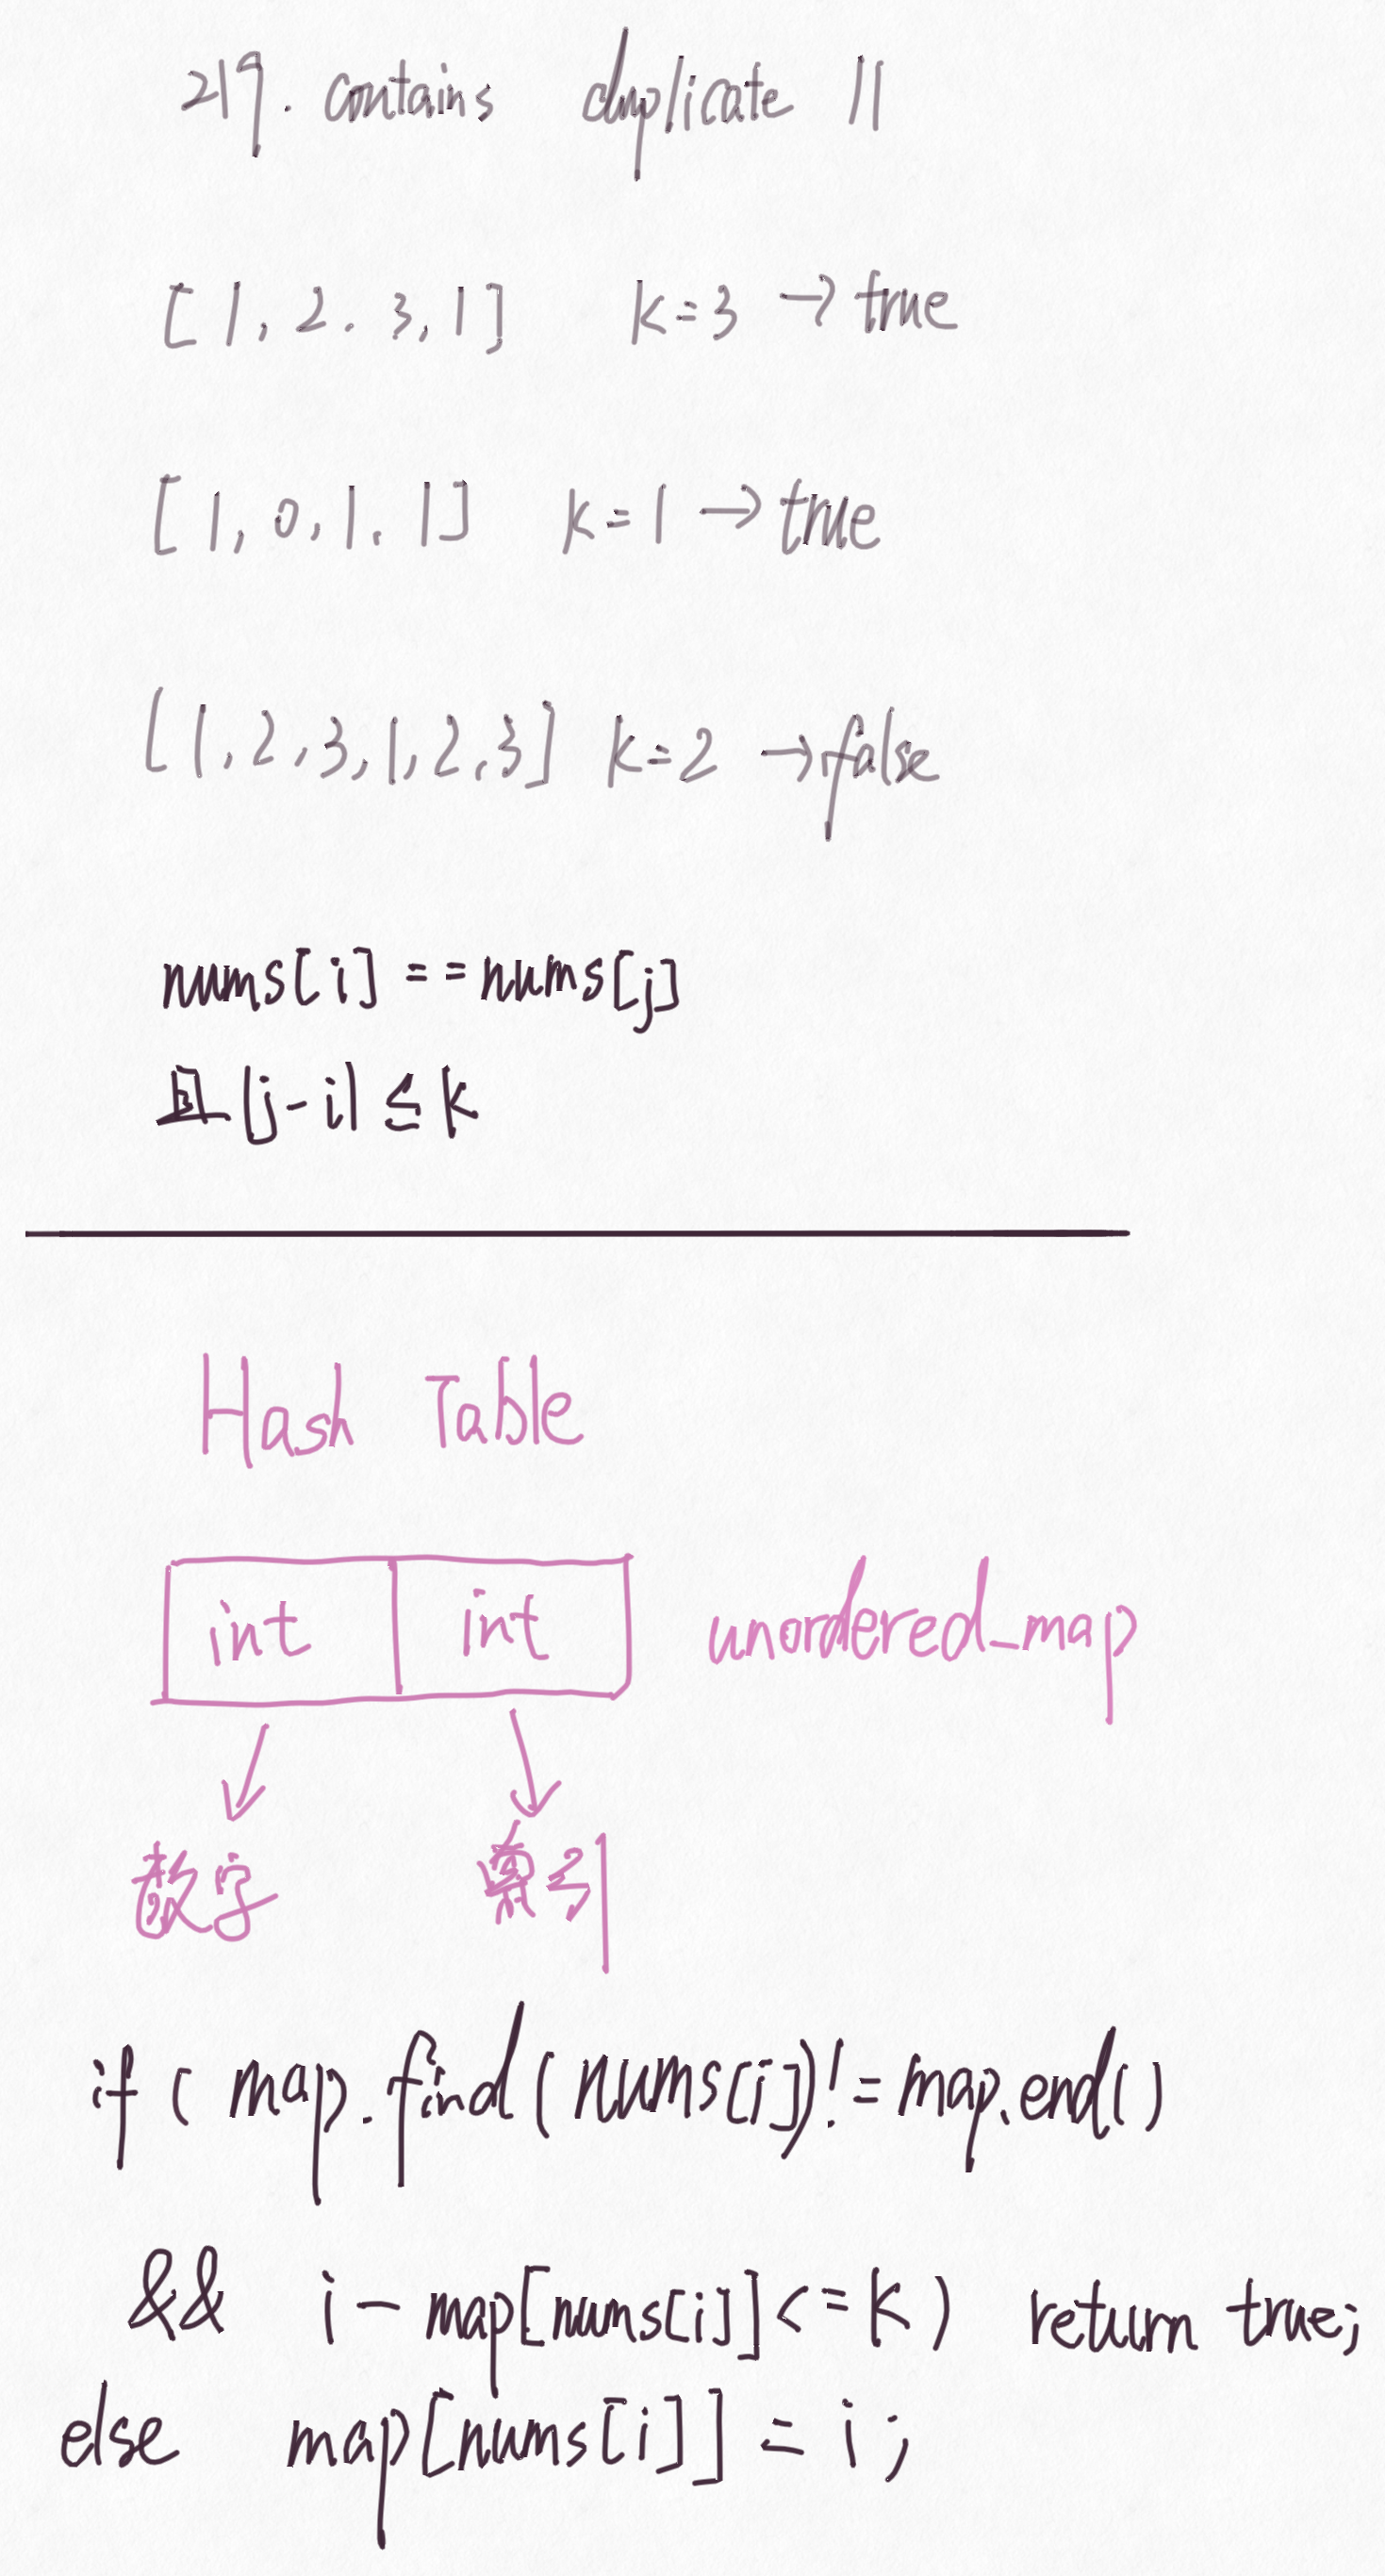 219. contains duplicate II
[1, 2. 3, 1] k=3 → true
[1, 0, 1. 1] k=1 → true
[1, 2, 3, 1, 2, 3] k=2 → false
nums[i] == nums[j]
且 |j-i| ≤ k
Hash Table
int int unordered_map
数字 索引
if ( map.find(nums[i]) != map.end()
&& i - map[nums[i]] <= k) return true;
else map[nums[i]] = i;